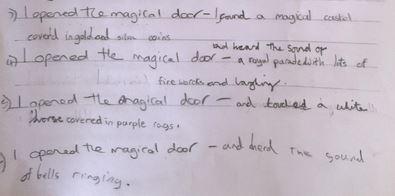 3) I opened the magical door - I found a magical castel
coverd in gold and silva coins
and heard the sond of
4) I opened the magical door - a royal parade with lots of
fire works and laghing.
5) I opened the magical door - and touched a white
horse covered in purple rags.
I opened the magical door - and herd the sound
of bells ringing.